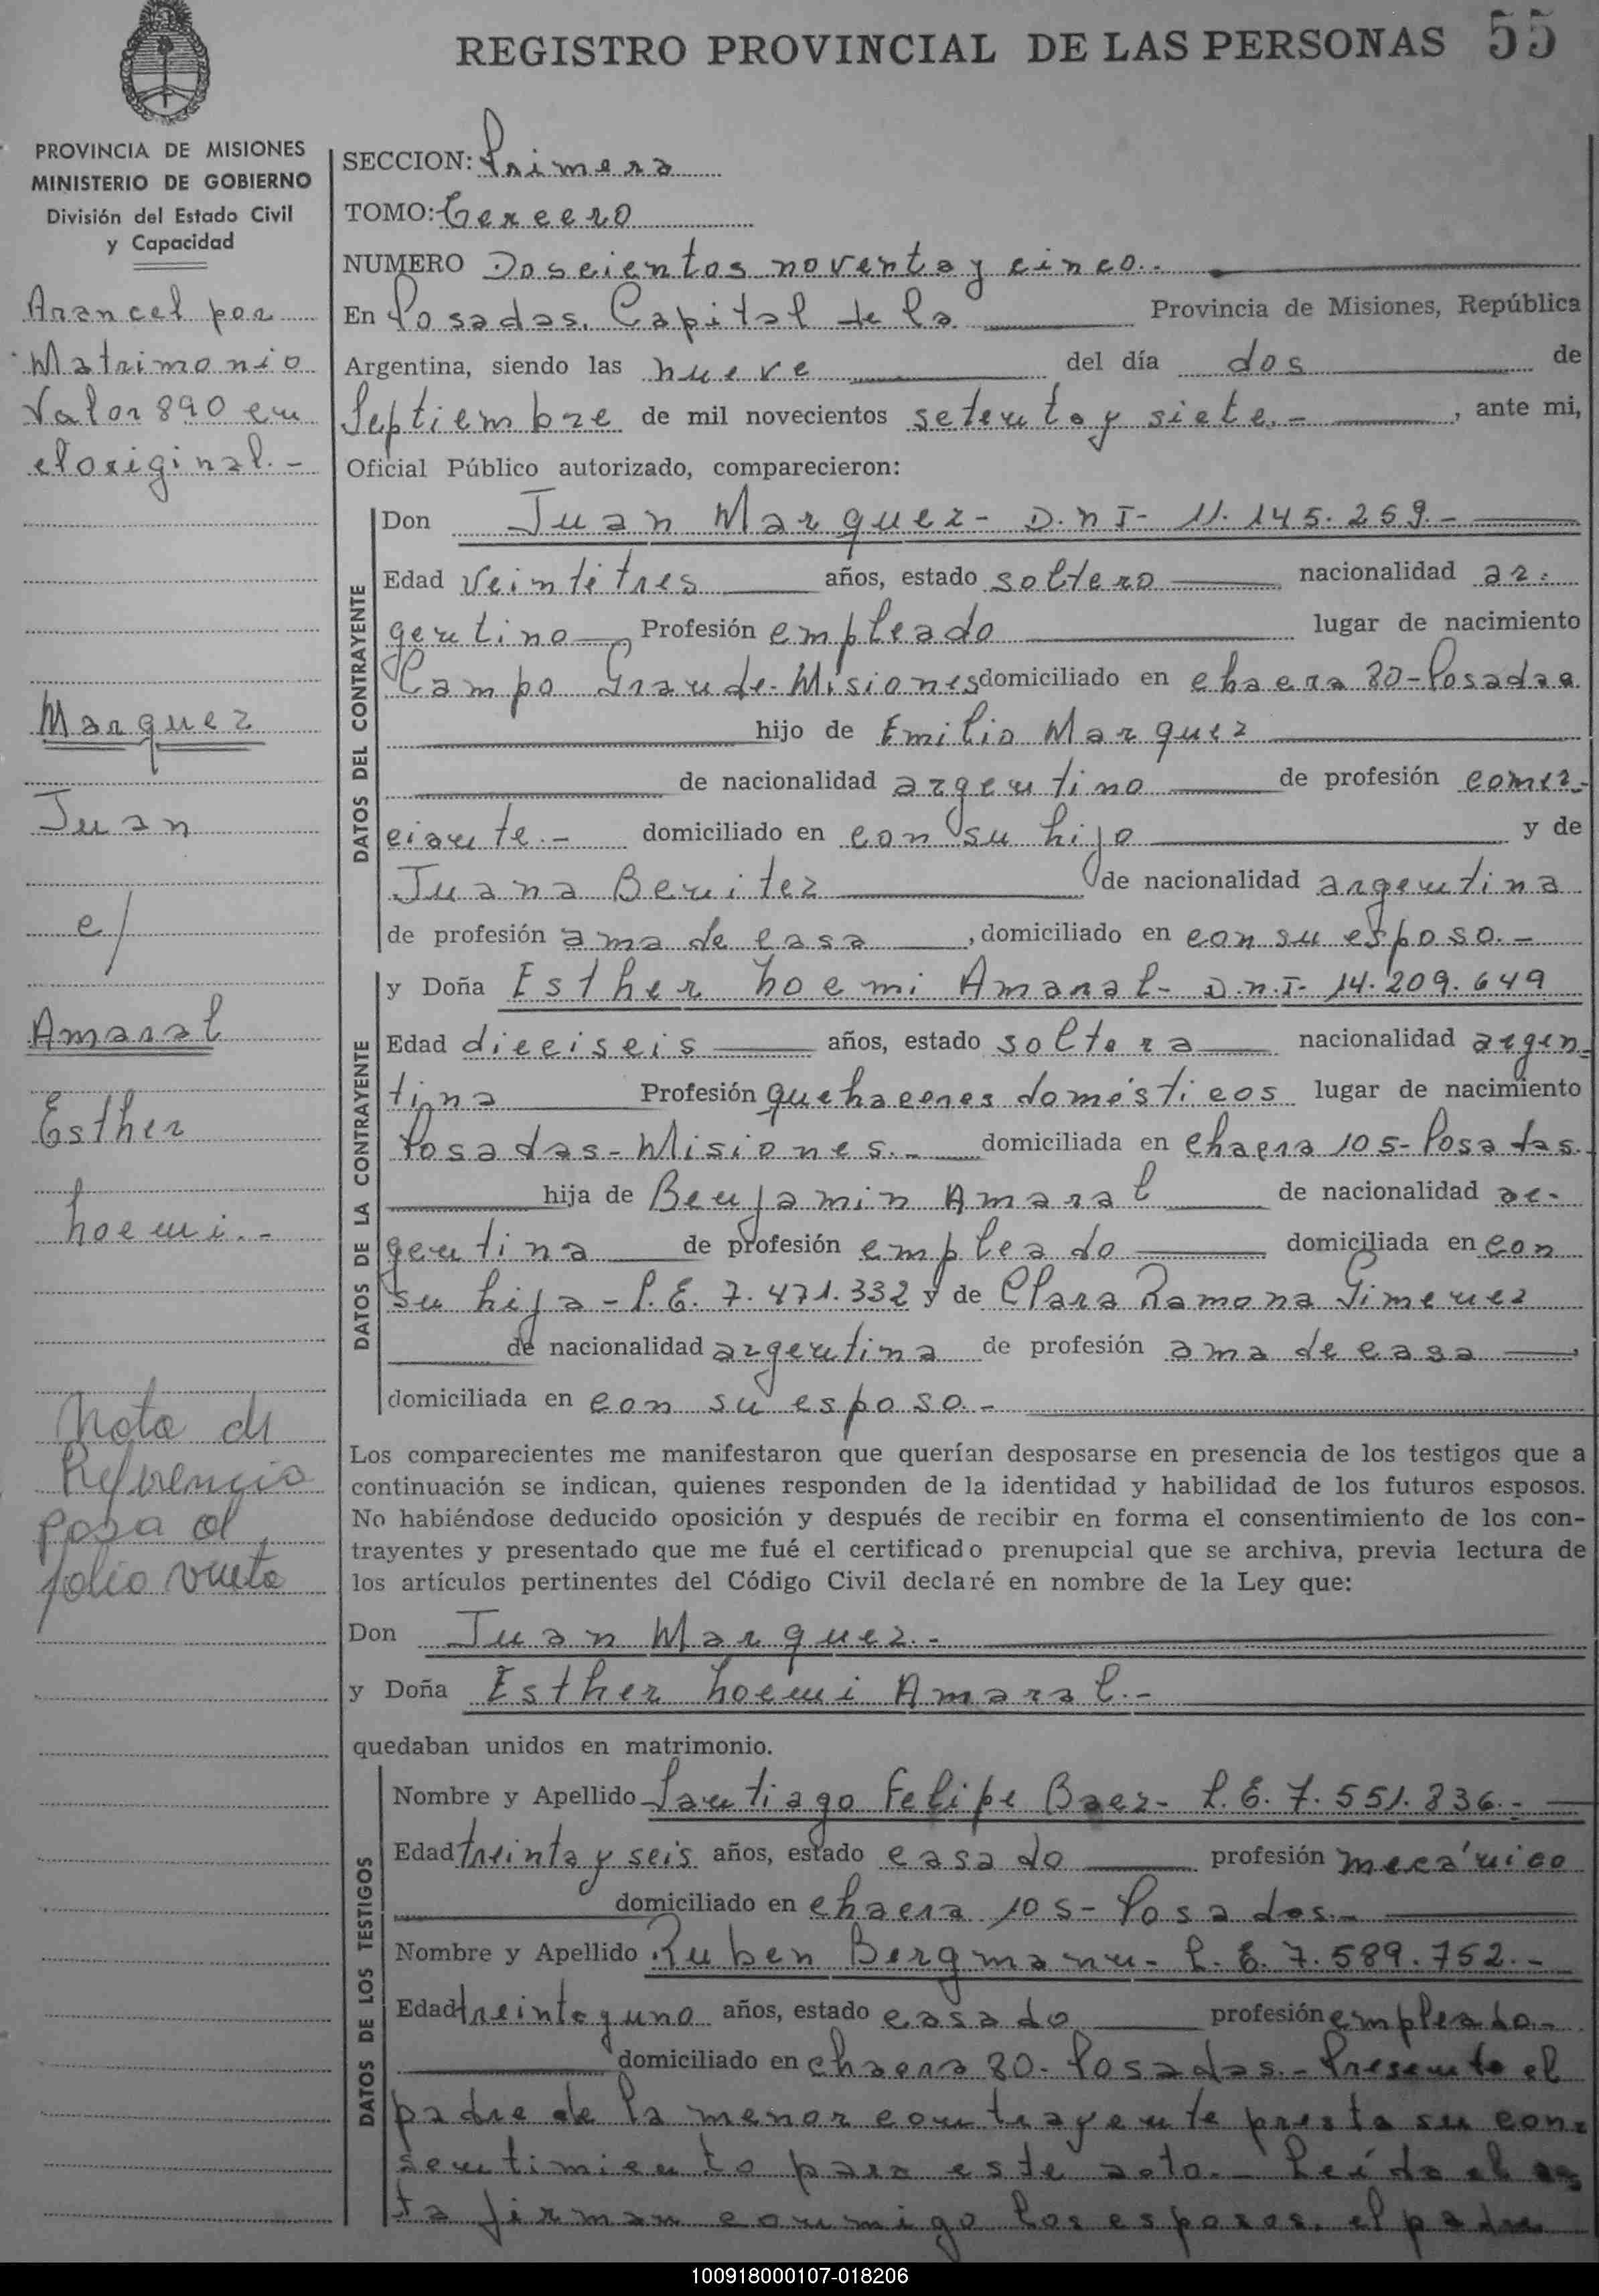 REGISTRO PROVINCIAL DE LAS PERSONAS 55
PROVINCIA DE MISIONES
MINISTERIO DE GOBIERNO
División del Estado Civil
y Capacidad
Arancel por
Matrimonio
Valor 890 en
el original.-
Marquez
Juan
c/
Amaral
Esther
Noemi.-
Nota de
Referencia
pasa al
folio vuelto
SECCION: Primera
TOMO: Tercero
NUMERO Doscientos noventa y cinco.-
En Posadas, Capital de la Provincia de Misiones, República
Argentina, siendo las nueve del día dos de
Septiembre de mil novecientos setenta y siete.- , ante mi,
Oficial Público autorizado, comparecieron:
DATOS DEL CONTRAYENTE
Don Juan Marquez- D.N.I- 11.145.259.-
Edad veintitres años, estado soltero nacionalidad ar-
gentino Profesión empleado lugar de nacimiento
Campo Grande-Misiones domiciliado en chacra 80-Posadas
hijo de Emilio Marquez
de nacionalidad argentino de profesión comer-
ciante.- domiciliado en con su hijo y de
Juana Benitez de nacionalidad argentina
de profesión ama de casa , domiciliado en con su esposo.-
DATOS DE LA CONTRAYENTE
y Doña Esther Noemi Amaral- D.N.I- 14.209.649
Edad dieciseis años, estado soltera nacionalidad argen-
tina Profesión quehaceres domésticos lugar de nacimiento
Posadas-Misiones.- domiciliada en chacra 105-Posadas.
hija de Benjamin Amaral de nacionalidad ar-
gentina de profesión empleado domiciliada en con
su hija-L.E. 7.471.332 y de Clara Ramona Gimenez
de nacionalidad argentina de profesión ama de casa ,
domiciliada en con su esposo.-
Los comparecientes me manifestaron que querían desposarse en presencia de los testigos que a
continuación se indican, quienes responden de la identidad y habilidad de los futuros esposos.
No habiéndose deducido oposición y después de recibir en forma el consentimiento de los con-
trayentes y presentado que me fué el certificado prenupcial que se archiva, previa lectura de
los artículos pertinentes del Código Civil declaré en nombre de la Ley que:
Don Juan Marquez.-
y Doña Esther Noemi Amaral.-
quedaban unidos en matrimonio.
DATOS DE LOS TESTIGOS
Nombre y Apellido Santiago Felipe Baez- L.E. 7.551.836.-
Edad treinta y seis años, estado casado profesión mecánico
domiciliado en chacra 105-Posadas.-
Nombre y Apellido Ruben Bergmann- L.E. 7.589.752.-
Edad treinta y uno años, estado casado profesión empleado.-
domiciliado en chacra 80-Posadas.- Presente el
padre de la menor contrayente presta su con-
sentimiento para este acto.- Leída el ac
ta firman conmigo los esposos, el padre
100918000107-018206